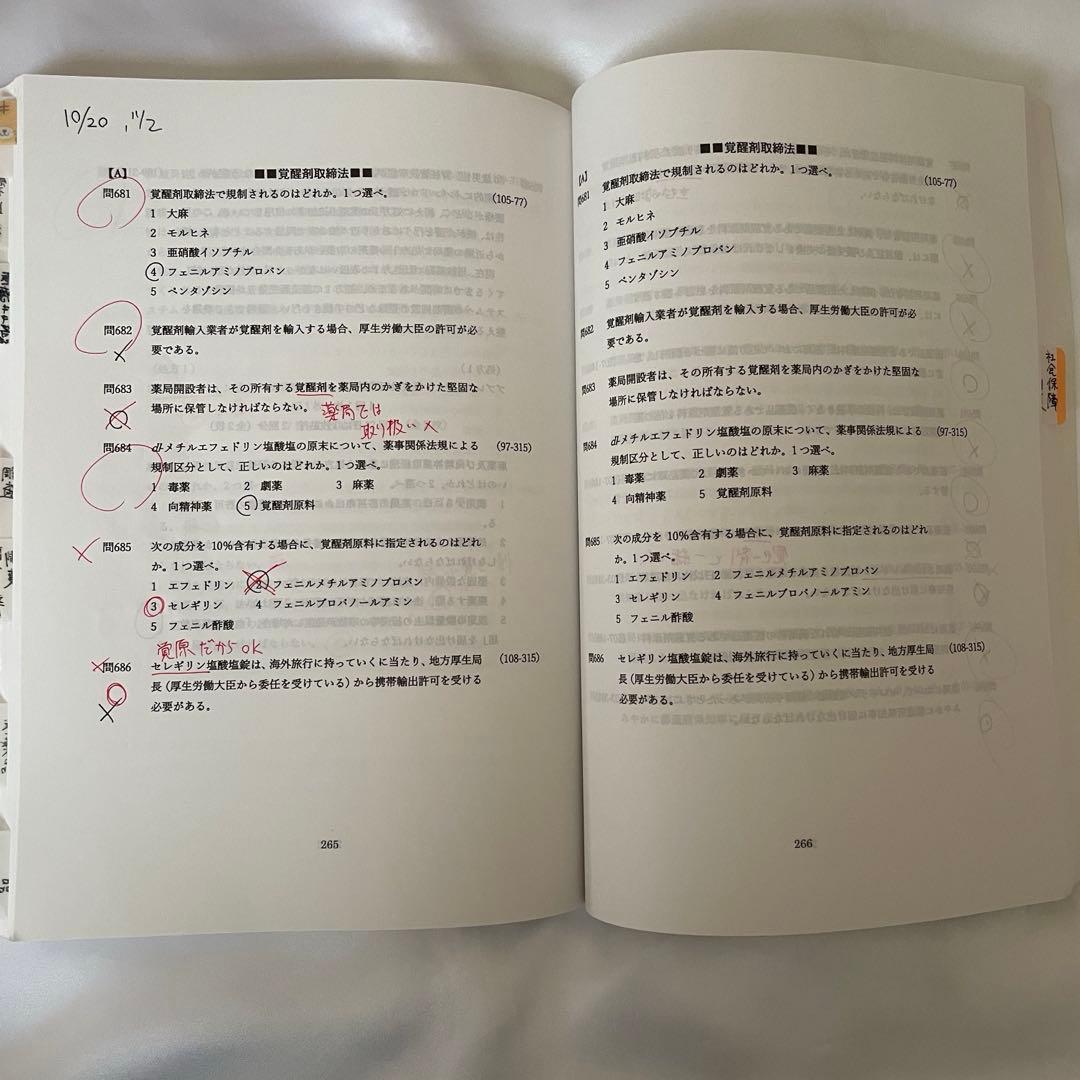 10/20 , 11/2
【A】 ■■覚醒剤取締法■■
問681 覚醒剤取締法で規制されるのはどれか。1つ選べ。 (105-77)
1 大麻
2 モルヒネ
3 亜硝酸イソブチル
4 フェニルアミノプロパン
5 ペンタゾシン
問682 覚醒剤輸入業者が覚醒剤を輸入する場合、厚生労働大臣の許可が必
× 要である。
問683 薬局開設者は、その所有する覚醒剤を薬局内のかぎをかけた堅固な
場所に保管しなければならない。 薬局では
取り扱い×
問684 dl-メチルエフェドリン塩酸塩の原末について、薬事関係法規による (97-315)
規制区分として、正しいのはどれか。1つ選べ。
1 毒薬 2 劇薬 3 麻薬
4 向精神薬 5 覚醒剤原料
× 問685 次の成分を 10%含有する場合に、覚醒剤原料に指定されるのはどれ
か。1つ選べ。
1 エフェドリン 2 フェニルメチルアミノプロパン
3 セレギリン 4 フェニルプロパノールアミン
5 フェニル酢酸
覚原だからOK
×問686 セレギリン塩酸塩錠は、海外旅行に持っていくに当たり、地方厚生局 (108-315)
長(厚生労働大臣から委任を受けている)から携帯輸出許可を受ける
× 必要がある。
265
■■覚醒剤取締法■■
【A】
問681 覚醒剤取締法で規制されるのはどれか。1つ選べ。 (105-77)
1 大麻
2 モルヒネ
3 亜硝酸イソブチル
4 フェニルアミノプロパン
5 ペンタゾシン
問682 覚醒剤輸入業者が覚醒剤を輸入する場合、厚生労働大臣の許可が必
要である。
問683 薬局開設者は、その所有する覚醒剤を薬局内のかぎをかけた堅固な
場所に保管しなければならない。
問684 dl-メチルエフェドリン塩酸塩の原末について、薬事関係法規による (97-315)
規制区分として、正しいのはどれか。1つ選べ。
1 毒薬 2 劇薬 3 麻薬
4 向精神薬 5 覚醒剤原料
問685 次の成分を 10%含有する場合に、覚醒剤原料に指定されるのはどれ
か。1つ選べ。
1 エフェドリン 2 フェニルメチルアミノプロパン
3 セレギリン 4 フェニルプロパノールアミン
5 フェニル酢酸
問686 セレギリン塩酸塩錠は、海外旅行に持っていくに当たり、地方厚生局 (108-315)
長(厚生労働大臣から委任を受けている)から携帯輸出許可を受ける
必要がある。
266
社会保障